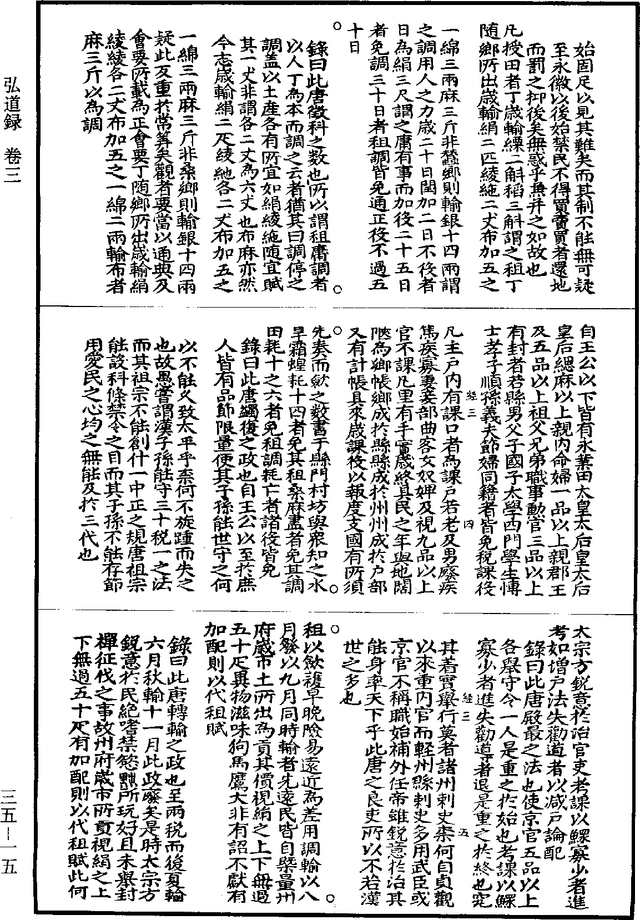 弘道録　卷三
三五—一五
始固足以見其難矣而其制不能無可疑
至永徽以後始禁民不得買賣買者還地
而罰之抑後矣無惑乎兼并之如故也
凡授田者丁歲輸粟二斛稻三斛謂之租丁
隨鄉所出歲輸絹二匹綾絁二丈布加五之
一綿三兩麻三斤非蠶鄉則輸銀十四兩謂
之調用人之力歲二十日閏加二日不役者
日為絹三尺謂之庸有事而加役二十五日
者免調三十日者租調皆免通正役不過五
十日
錄曰此唐徵科之数也所以謂租庸調者
以人丁為本而調之云者猶其曰調停之
調蓋以土產各有所宜如絹綾絁隨宜賦
其一丈非謂各二丈為六丈也布麻亦然
今志歲輸絹二疋綾絁各二丈布加五之
一綿三兩麻三斤非桑鄉則輸銀十四兩
疑此反重於常筭矣觀者要當以通典及
會要所載為正會要丁隨鄉所出歲輸絹
綾絁各二丈布加五之一綿二兩輸布者
麻三斤以為調
自王公以下皆有永業田太皇太后皇太后
皇后緦麻以上親內命婦一品以上親郡王
及五品以上祖父兄弟職事勳官三品以上
有封者若縣男父子國子太學四門學生俊
士孝子順孫義夫節婦同籍者皆免稅課役
凡主戶内有課口者為課戶若老及男廢疾
篤疾寡妻妾部曲客女奴婢及視九品以上
官不課凡里有手實歲終具民之年與地闊
陿為鄉帳鄉成於縣縣成於州州成於戶部
又有計帳具來歲課役以報度支國有所須
先奏而歛之數書于縣門村坊與衆知之水
旱霜蝗耗十四者免其租桑麻盡者免其調
田耗十之六者免租調耗亡者諸役皆免
錄曰此唐蠲復之政也自王公以至於庶
人皆有品節限量使其子孫能世守之何
以不能久致太平乎奈何不旋踵而失之
也故愚嘗謂漢子孫能守三十稅一之法
而其祖宗不能創什一中正之規唐祖宗
能設科條禁令之目而其子孫不能存節
用愛民之心均之無能及於三代也
經三　四
太宗方銳意於治官吏考課以鰥寡少者進
考如增戶法失勸道者以减戶論配
錄曰此唐殿最之法也使京官五品以上
各舉守令一人是重之於始也考課以鰥
寡少者進失勸導者退是重之於終也
其若實舉行莫者諸州刺史柰何自貞觀
以來重内官而輕州縣刺史多用武臣或
京官不稱職始補外任帝雖銳意於治其
能身率天下乎此唐之良吏所以不若漢
世之多也
經三　五
租以歛穫早晚險易遠近為差用調輸以八
月發以九月同時輸者先遠民皆自槩量州
府歲市土所出為貢其價視絹之上下無過
五十疋異物滋味狗馬鷹犬非有詔不獻有
加配則以代租賦
錄曰此唐轉輸之政也至兩稅而後夏輸
六月秋輸十一月此政廢矣是時太宗方
銳意於民絕嗜禁慾所玩好且未舉封
禪征伐之事故州府歲市所貢視絹之上
下無過五十疋有加配則以代租賦此何